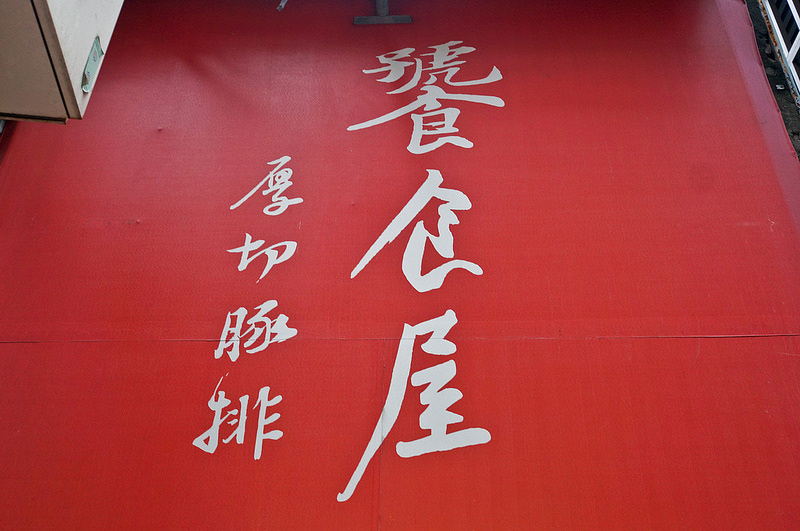 饕食屋
厚切豚排